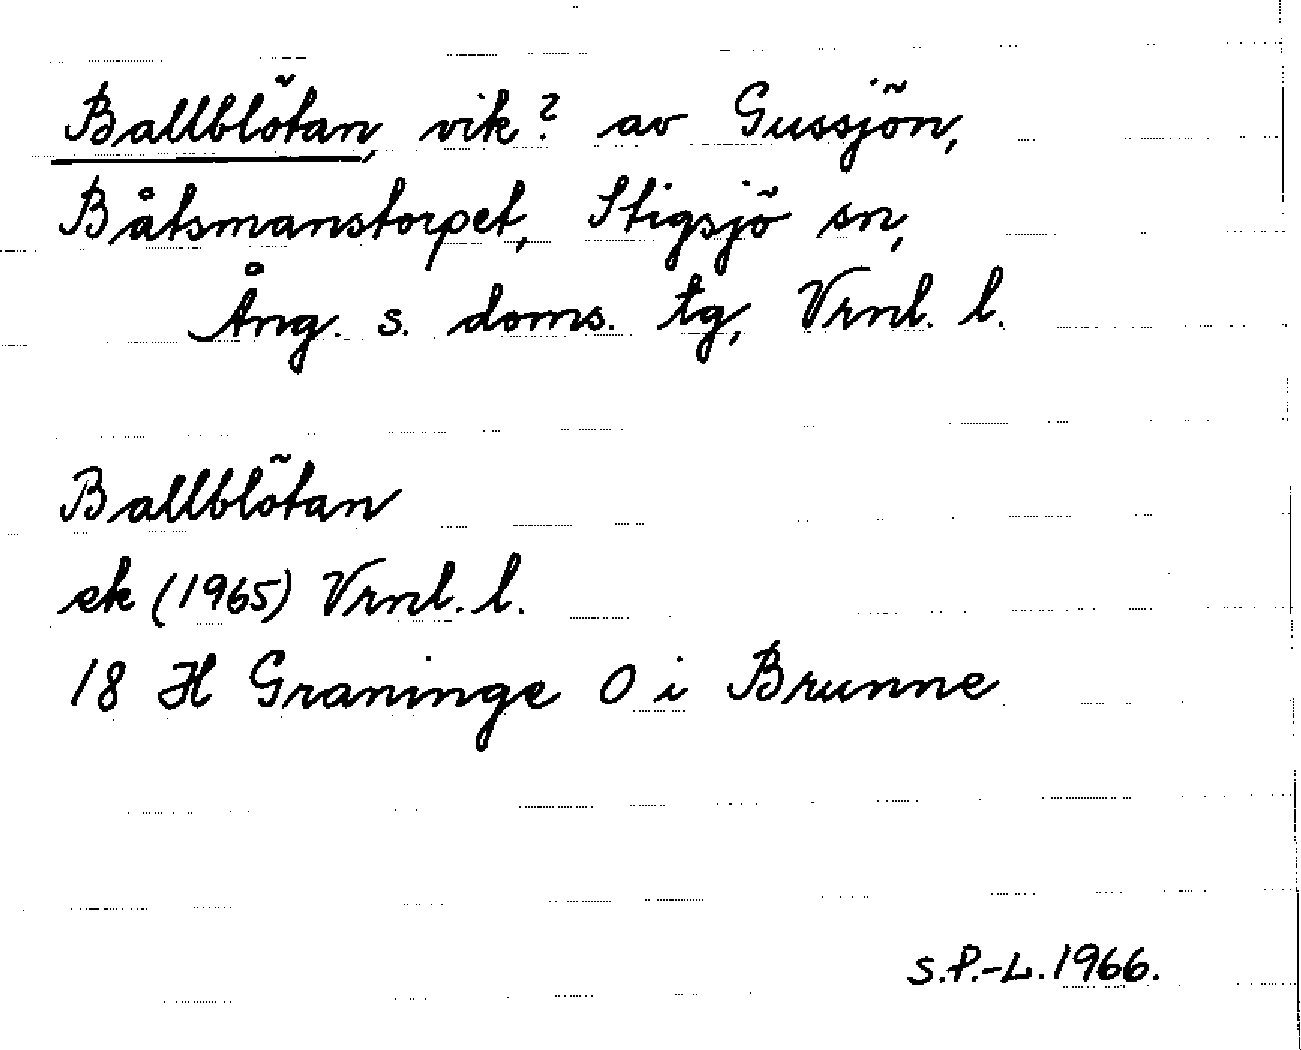 Ballblötan, vik? av Gussjön,
Båtsmanstorpet, Stigsjö sn,
Ång. s. doms. tg, Vrnl. l.
Ballblötan
ek (1965) Vrnl. l.
18 H Graninge O i Brunne
S.P.-L. 1966.